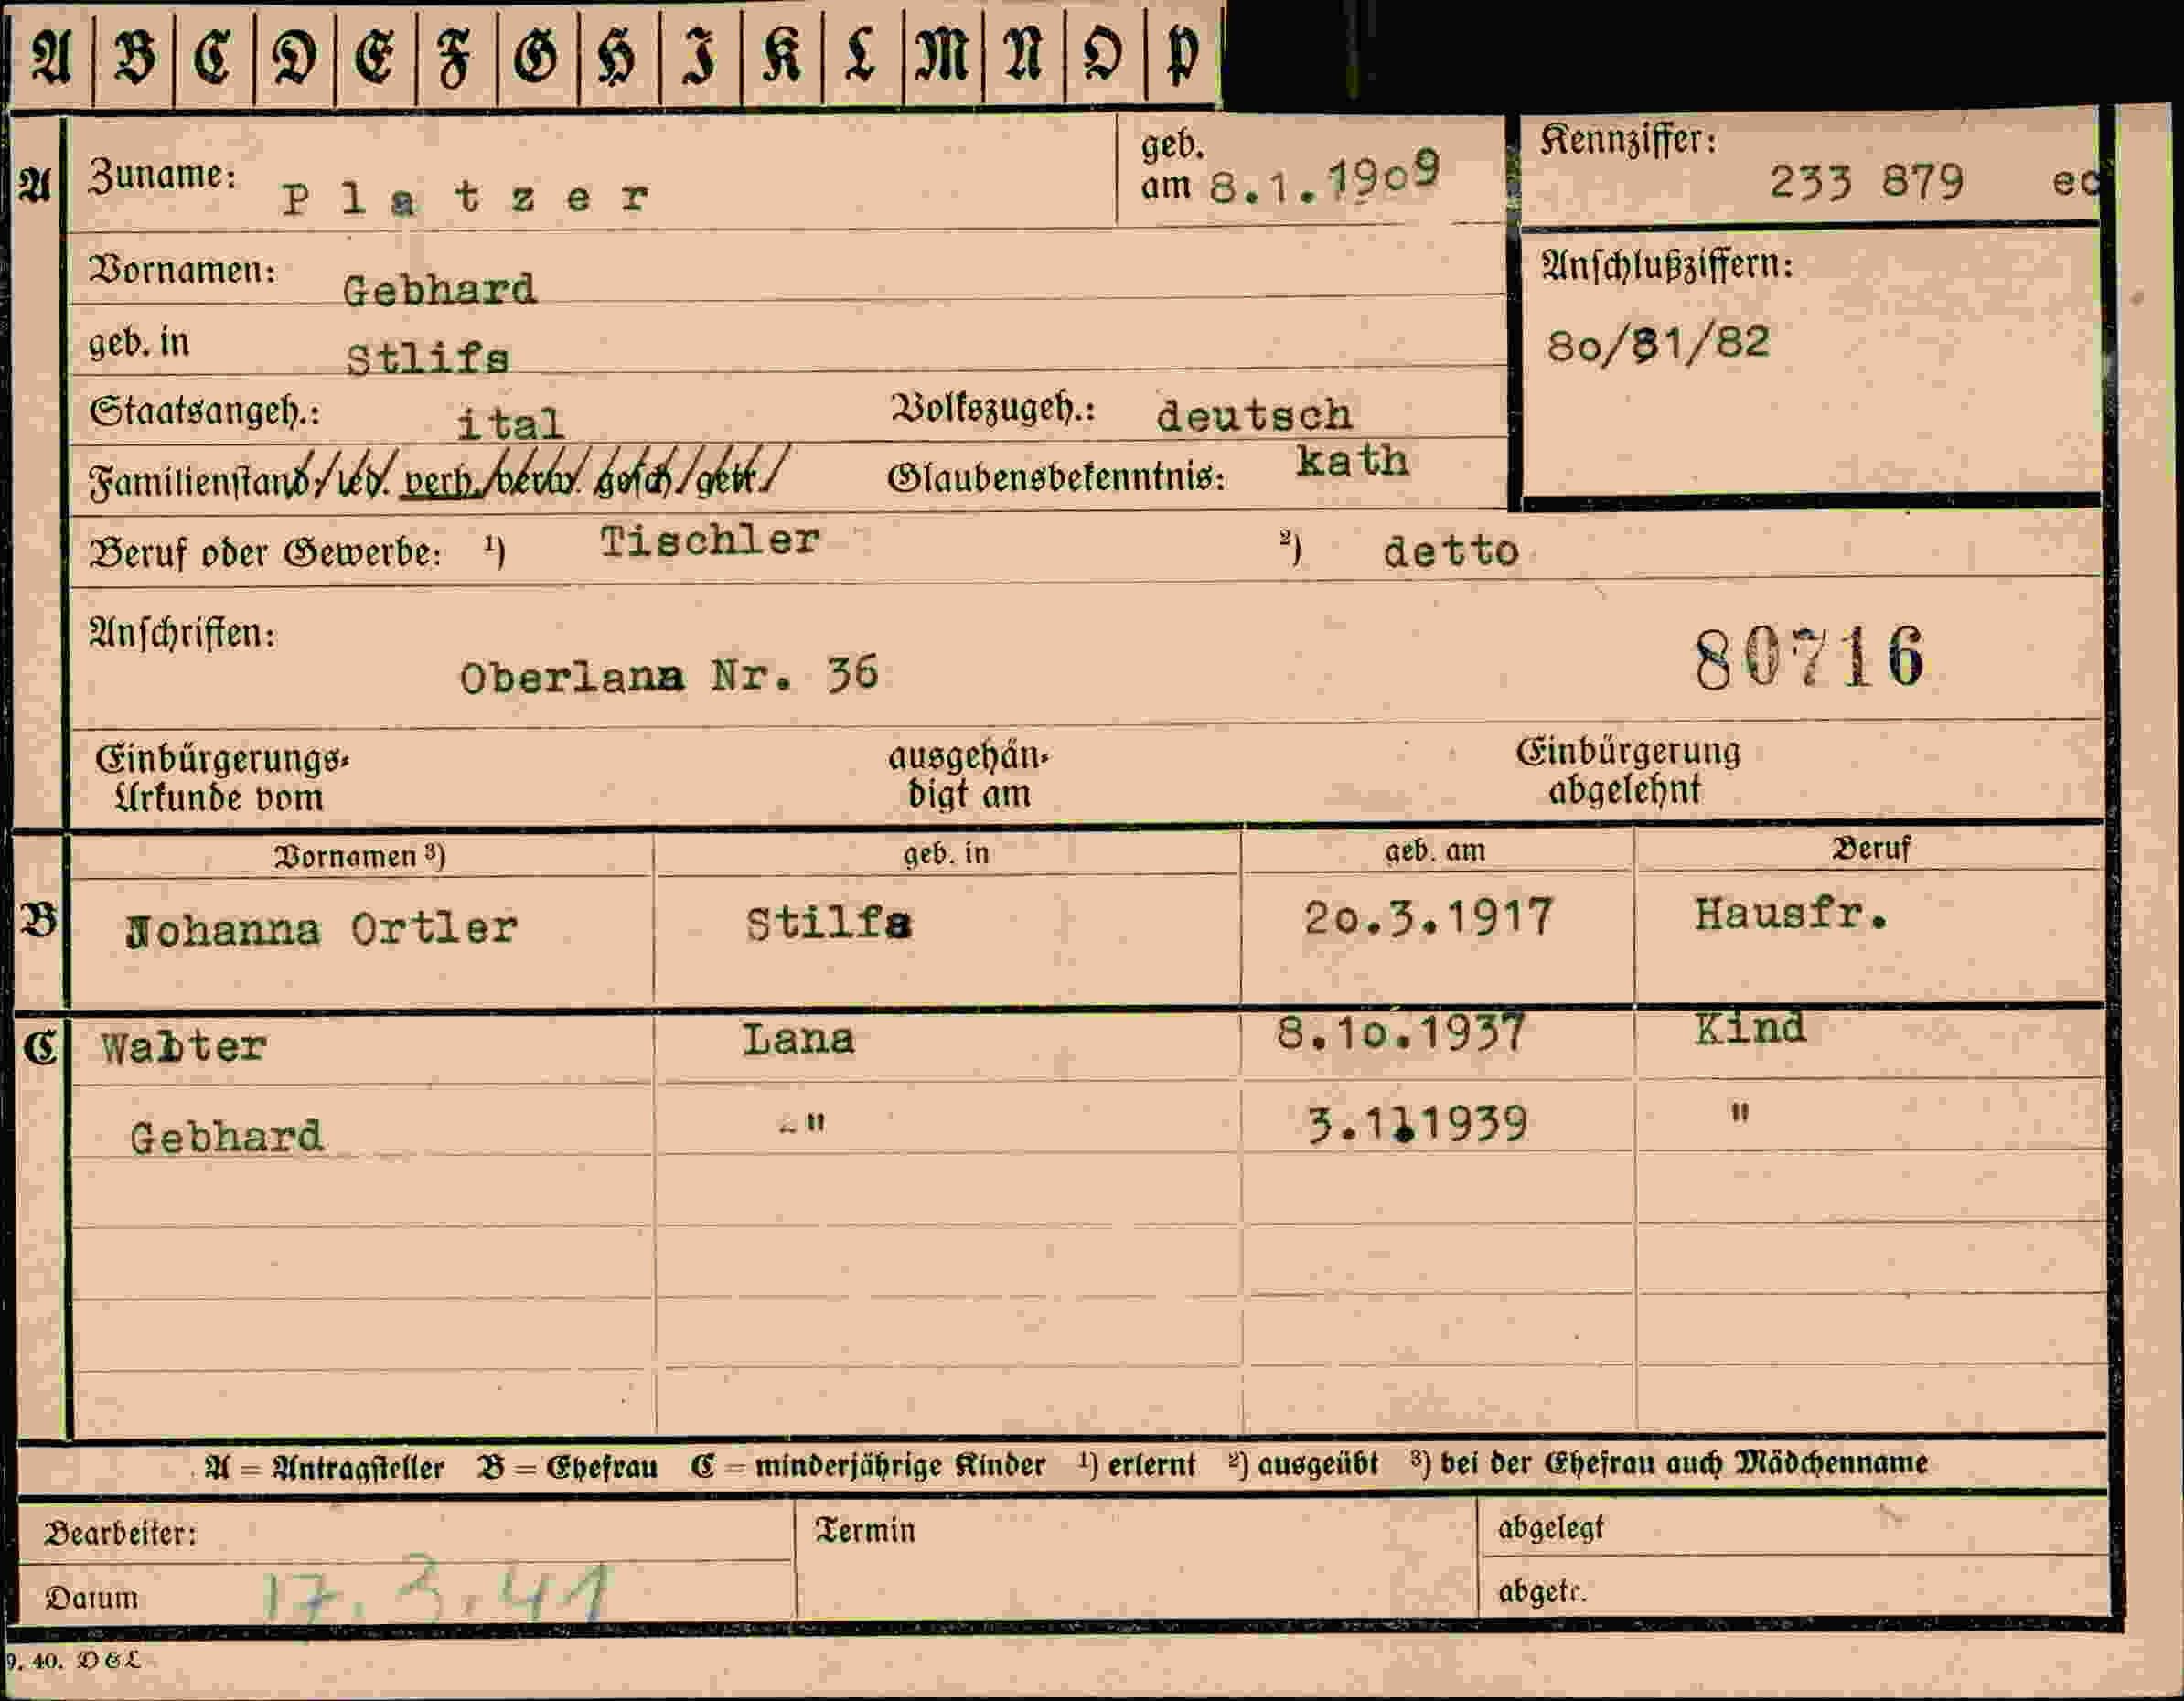 A B C D E F G H I K L M N O P
A Zuname: Platzer geb. am 8.1.1909 Kennziffer: 233 879 ec
Vornamen: Gebhard Anschlußziffern:
geb. in Stlifs 80/81/82
Staatsangeh.: ital Volkszugeh.: deutsch
Familienstand: led. verh. verw. gesch. getr. Glaubensbekenntnis: kath
Beruf oder Gewerbe: ¹) Tischler ²) detto
Anschriften:
Oberlana Nr. 36 80716
Einbürgerungs- ausgehän- Einbürgerung
Urkunde vom digt am abgelehnt
Vornamen ³) geb. in geb. am Beruf
B Johanna Ortler Stilfs 20.3.1917 Hausfr.
C Walter Lana 8.10.1937 Kind
Gebhard -" 3.11.1939 "
A = Antragsteller B = Ehefrau C = minderjährige Kinder ¹) erlernt ²) ausgeübt ³) bei der Ehefrau auch Mädchenname
Bearbeiter: Termin abgelegt
Datum 17.3.41 abgetr.
9. 40. DEL